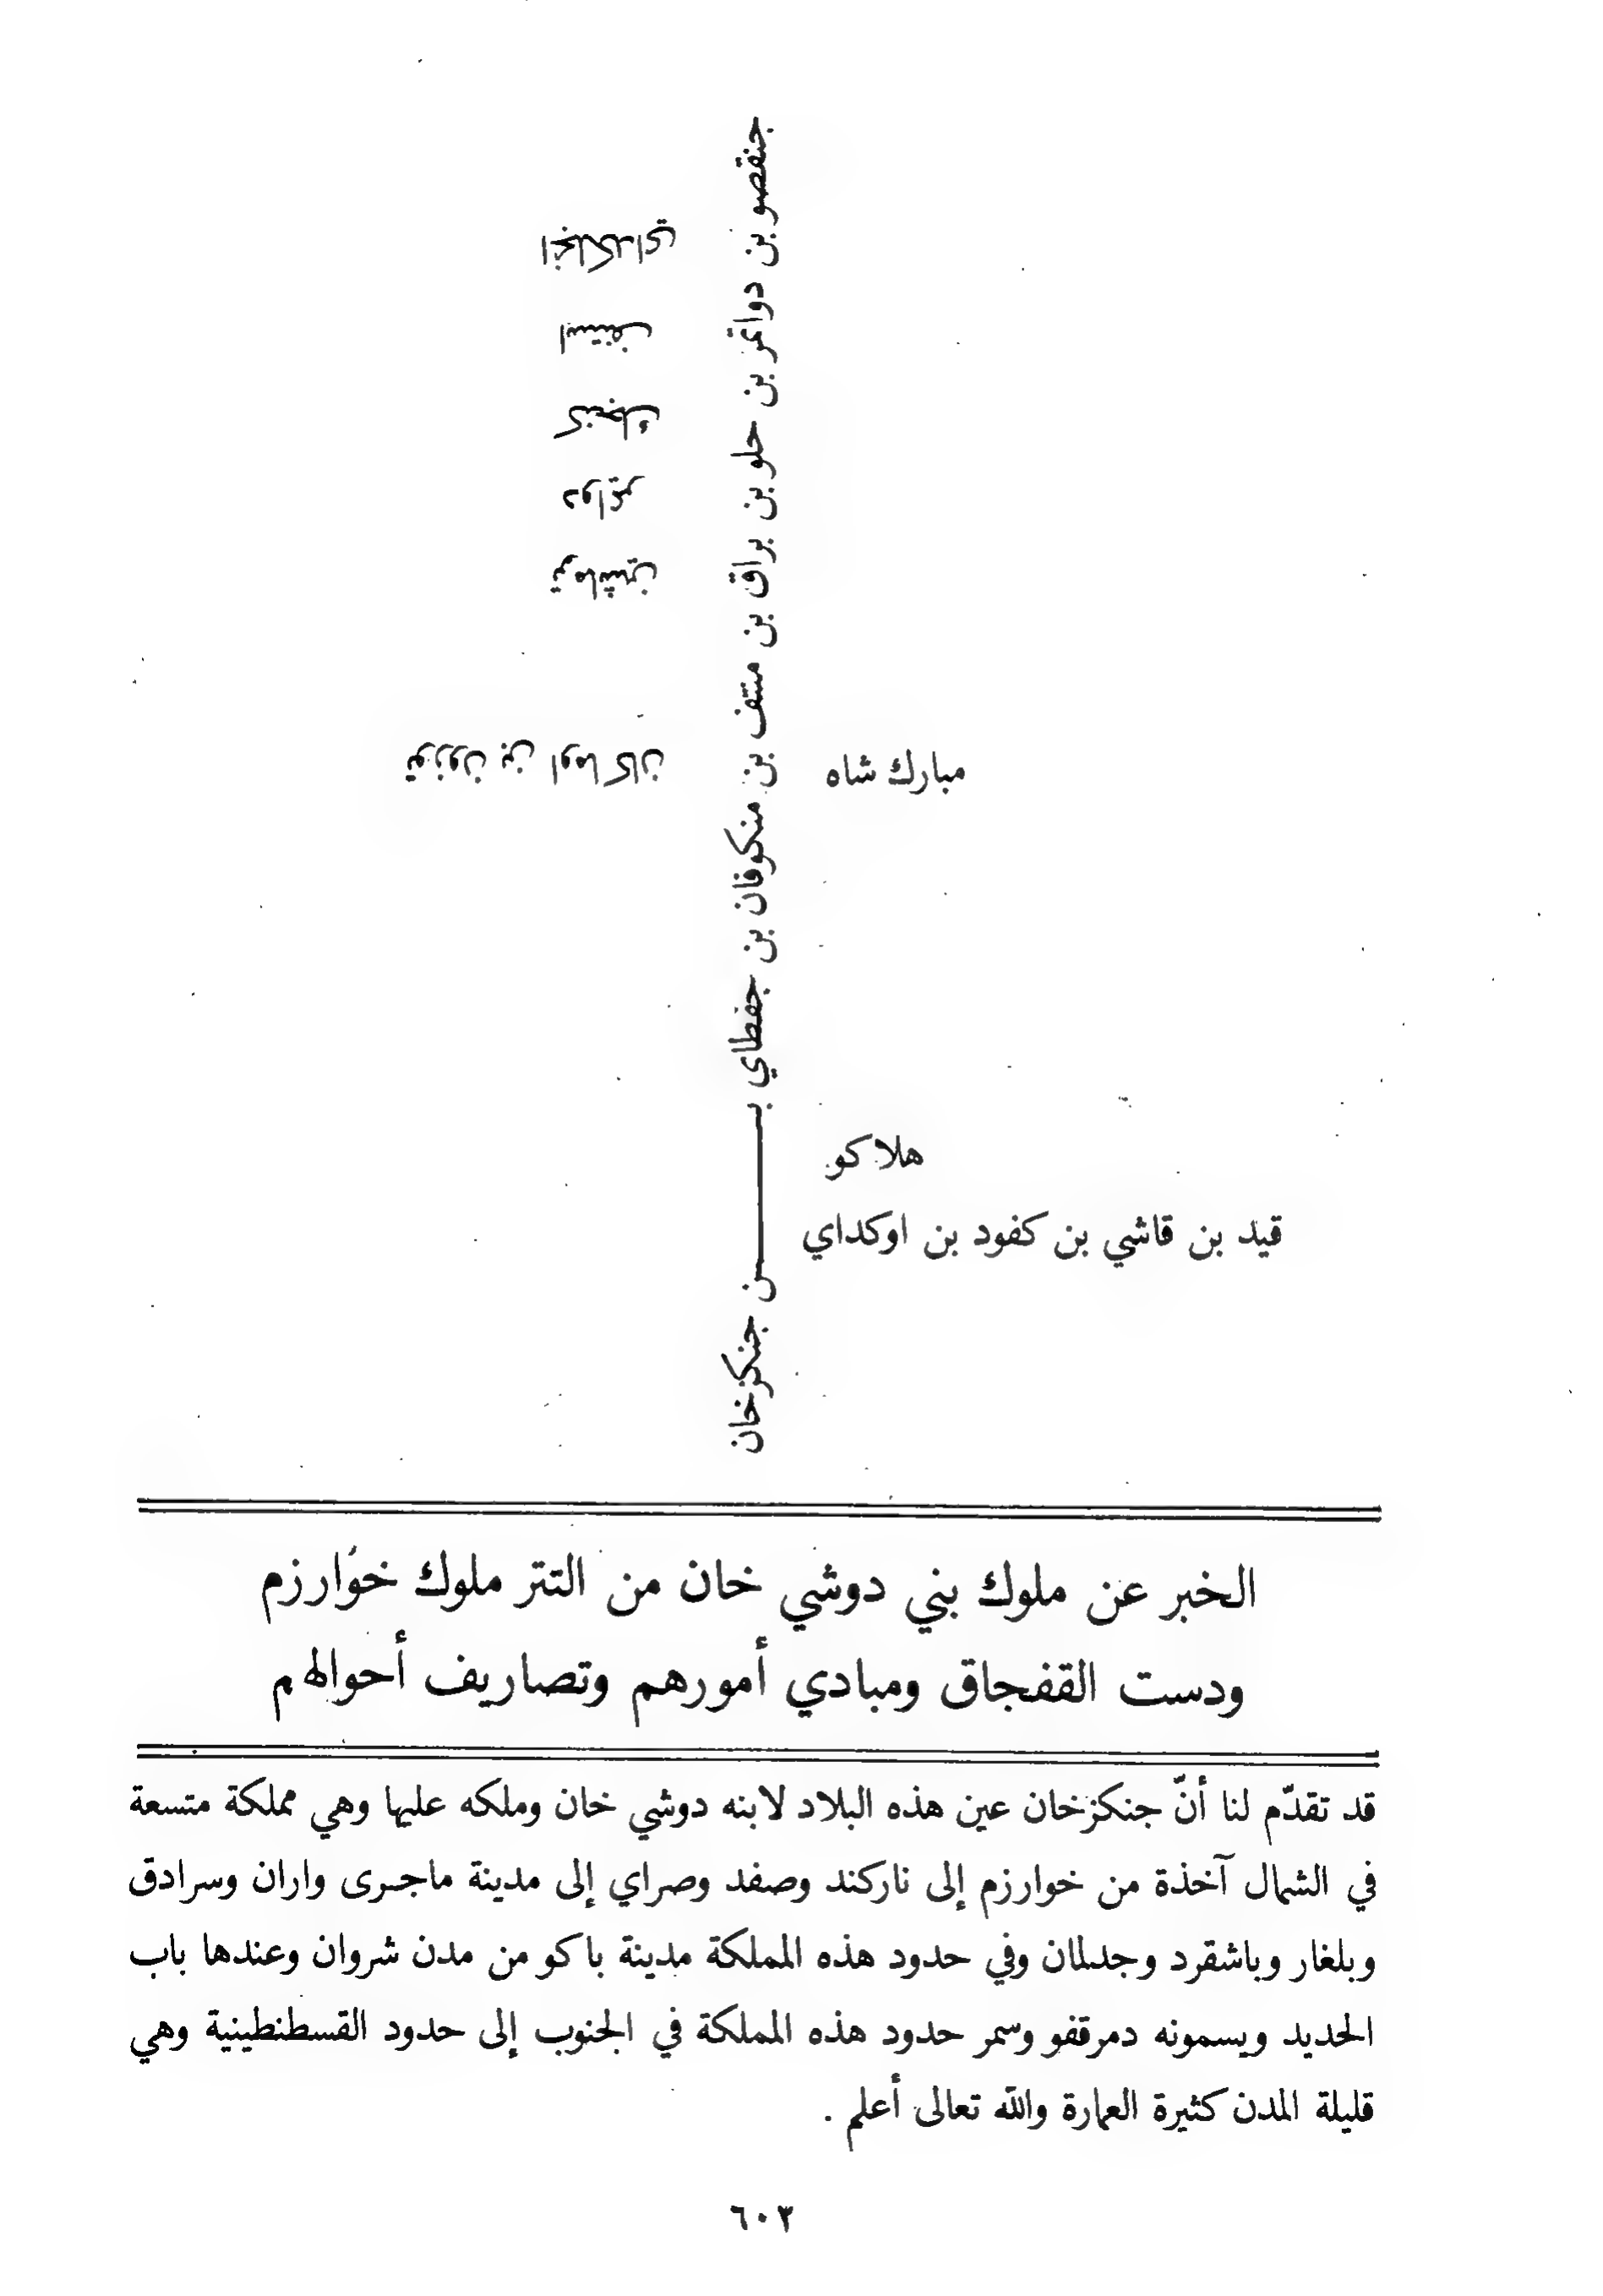 جنقصو بن دواتمر بن حلو بن براق بن منتف بن منكوفان بن جفطاي بـــــن جنكزخان
انجلكداي
كنجك
دواتمر
ترماشين
توزون بن اوماكان
مبارك شاه
هلاكو
قيد بن قاشي بن كفود بن اوكداي
الخبر عن ملوك بني دوشي خان من التتر ملوك خوارزم
ودست القفجاق ومبادي أمورهم وتصاريف أحوالهم
قد تقدّم لنا أنّ جنكزخان عين هذه البلاد لابنه دوشي خان وملكه عليها وهي مملكة متسعة
في الشمال آخذة من خوارزم إلى ناركند وصفد وصراي إلى مدينة ماجرى واران وسرادق
وبلغار وباشقرد وجدلمان وفي حدود هذه المملكة مدينة باكو من مدن شروان وعندها باب
الحديد ويسمونه دمرقفو وسمر حدود هذه المملكة في الجنوب إلى حدود القسطنطينية وهي
قليلة المدن كثيرة العمارة والله تعالى أعلم .
٦٠٣